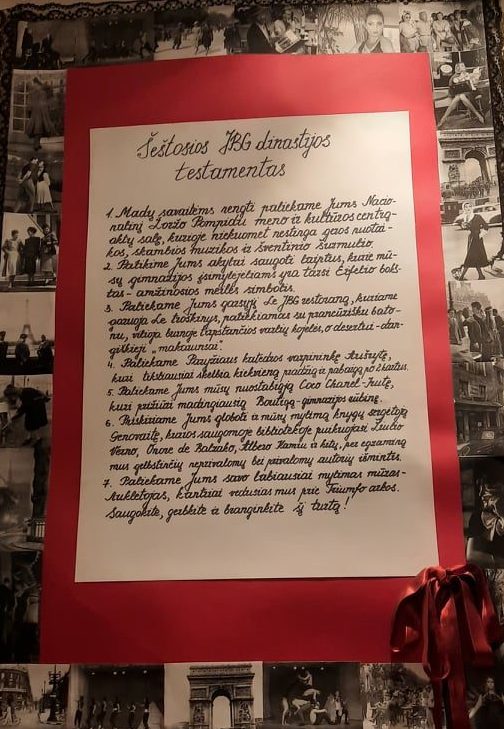 Šeštosios JBG dinastijos
testamentas
1. Madų savaitėms rengti paliekame Jums Nacio-
nalinį Žoržo Pompidu meno ir kultūros centrą-
aktų salę, kurioje niekuomet nestinga geros nuotai-
kos, skambios muzikos ir šventinio šurmulio.
2. Patikime Jums akylai saugoti laiptus, kurie mū-
sų gimnazijos įsimylėjėliams yra tarsi Eifelio bokš-
tas - amžinosios meilės simbolis.
3. Paliekame Jums gardųjį Le JBG restoraną, kuriame
garuoja Le troškinys, patiekiamas su prancūzišku bato-
nu, vilioja burnoje tirpstančios varlių kojelės, o desertui - dan-
giškieji „makarunai".
4. Paliekame Paryžiaus katedros varpininkę Aušrytę,
kuri tiksliausiai skelbia kiekvieną pradžią ir pabaigą po chartus.
5. Paliekame Jums mūsų nuostabiąją Coco Chanel - Rutę,
kuri prižiūri madingiausią Boutiqą - gimnazijos rūbinę.
6. Priskiriame Jums globoti ir mūsų mylimą knygų sergėtoją
Genovaitę, kurios saugomoje bibliotekoje puikuojasi Žiulio
Verno, Onorė de Balzako, Albero Kamiu ir kitų, per egzaminą
mus gelbstinčių neprivalomų bei privalomų autorių išmintis.
7. Paliekame Jums savo labiausiai mylimas mūzas-
auklėtojas, kantriai vedusias mus prie Triumfo arkos.
Saugokite, gerbkite ir branginkite šį turtą!